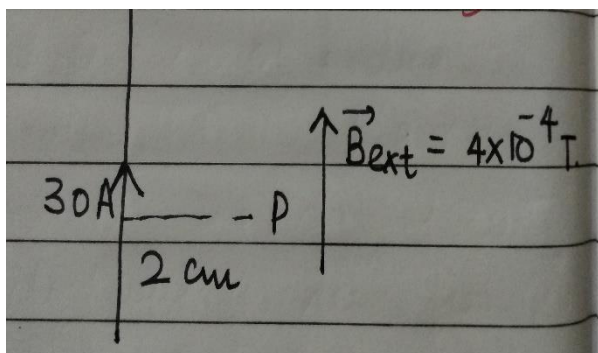 B⃗ext = 4×10⁻⁴ T.
30A
P
2 cm